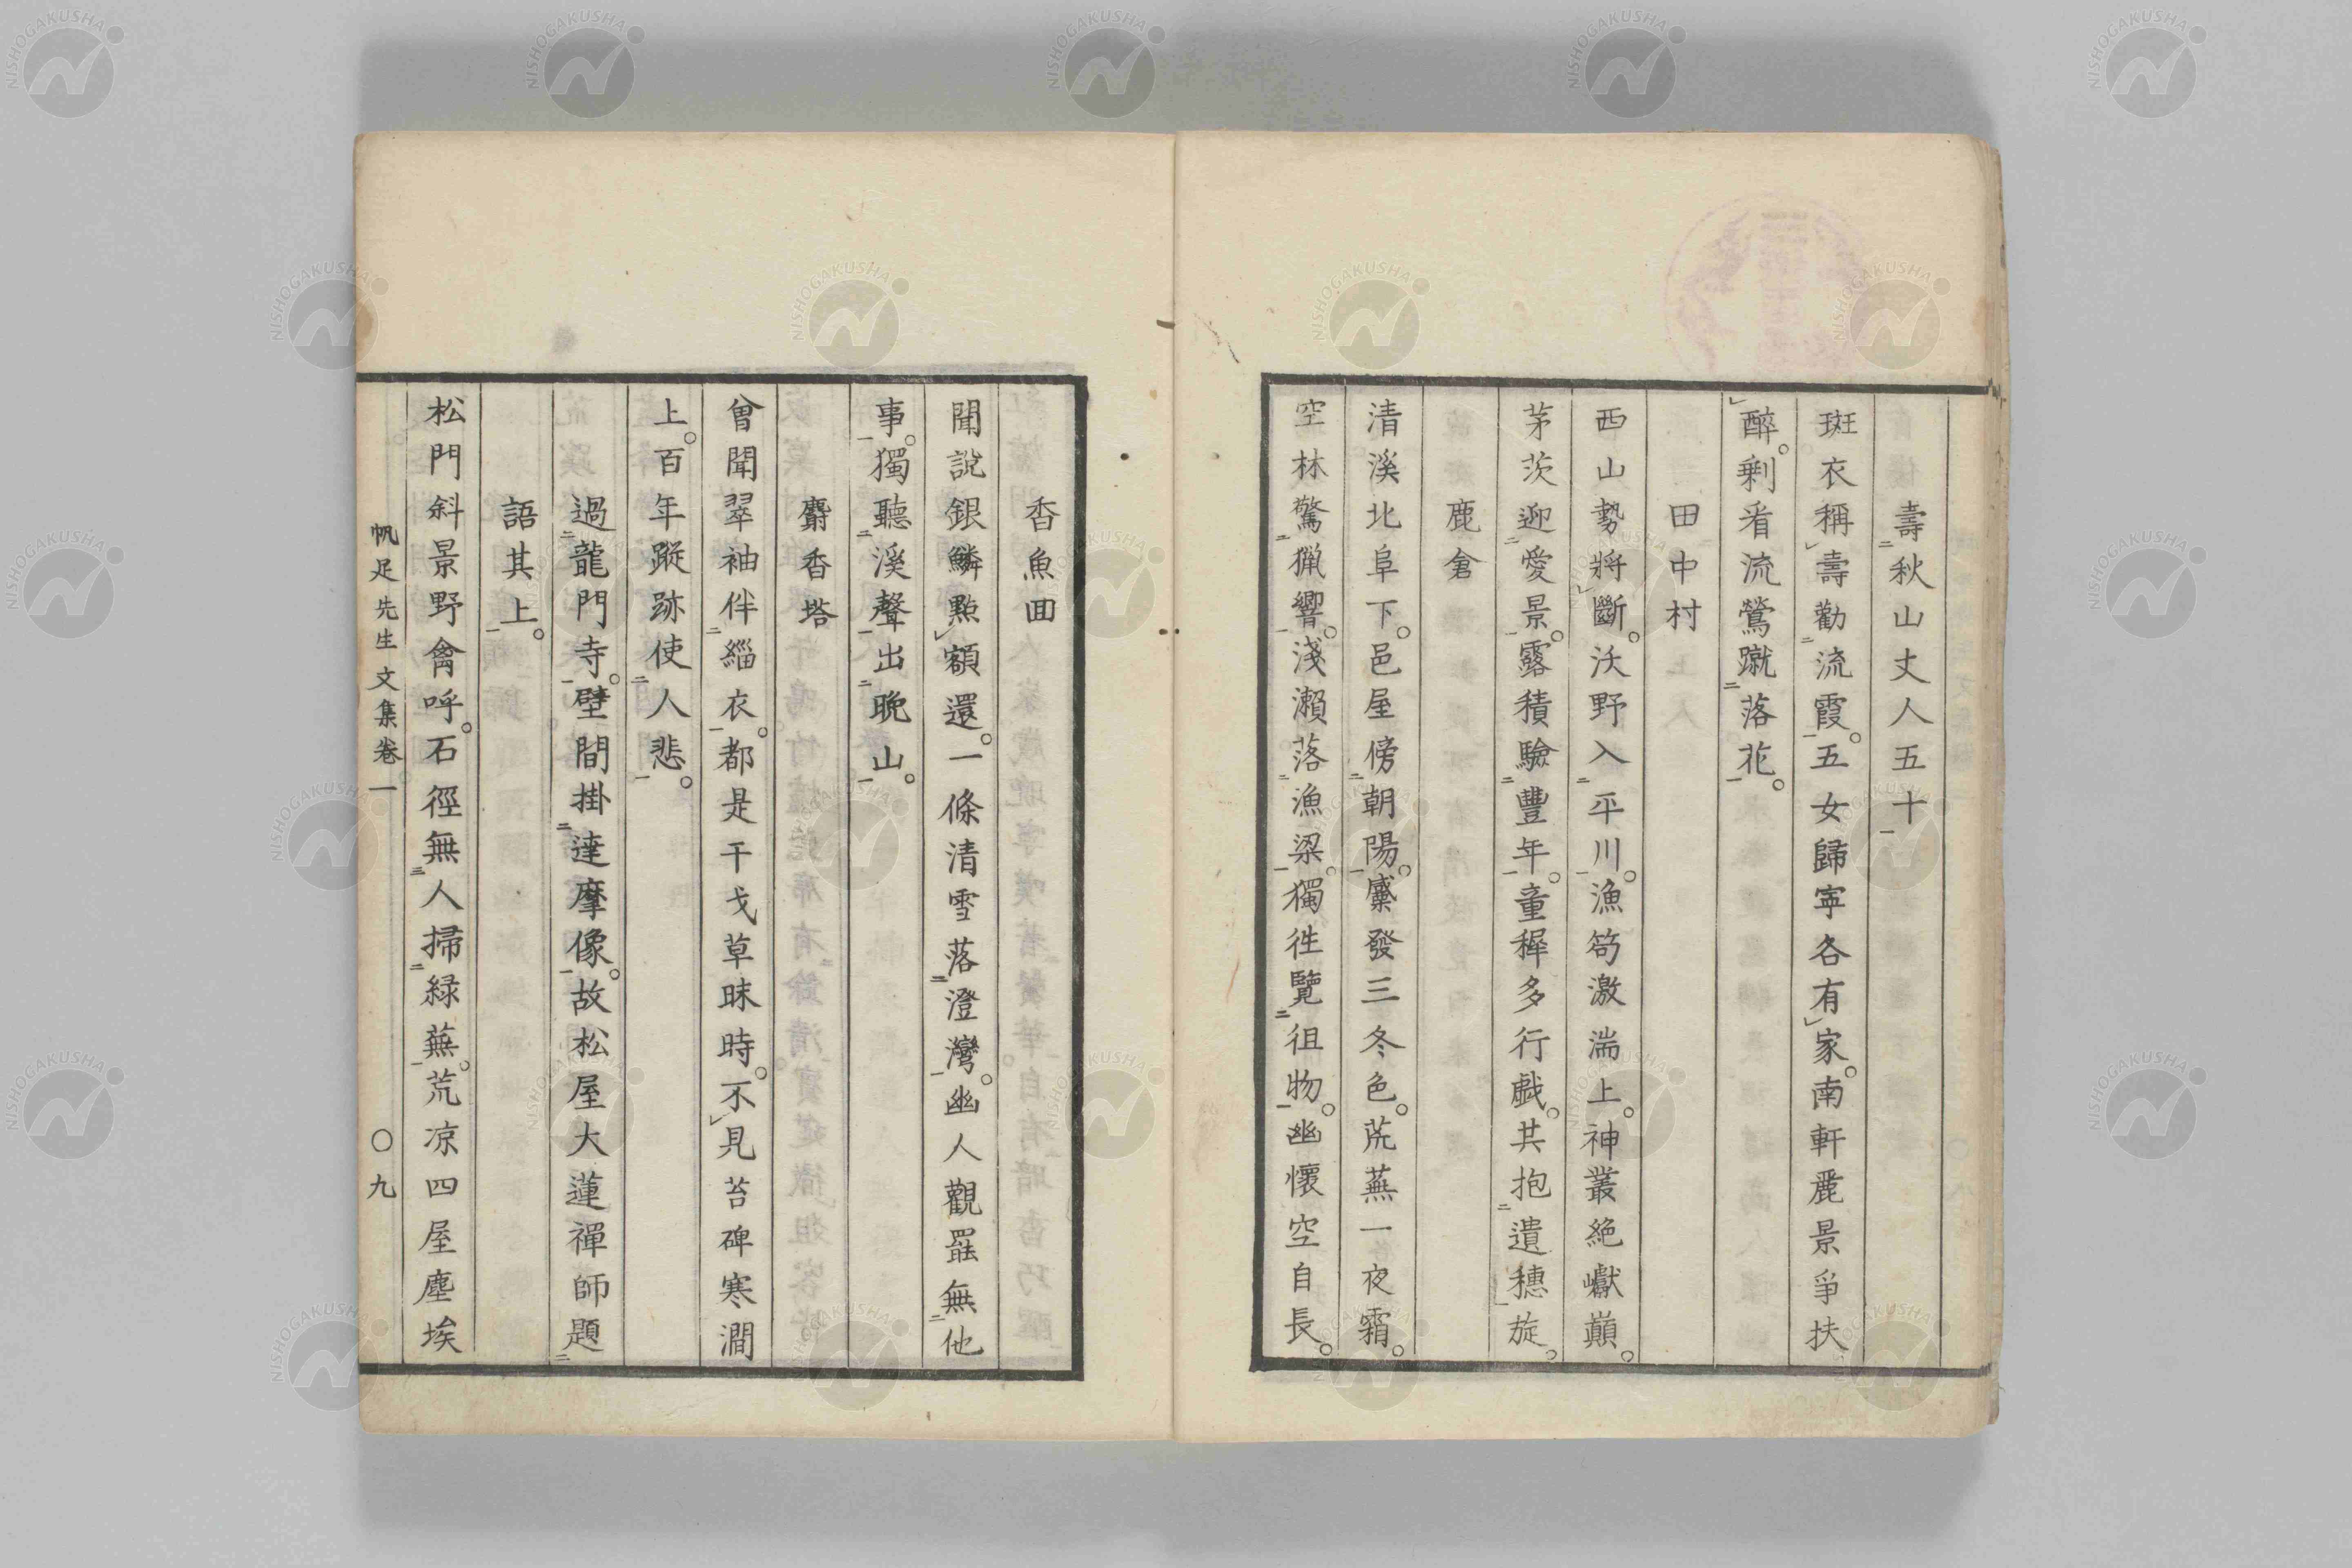 壽秋山丈人五十
斑衣稱壽勸流霞。五女歸寧各有家。南軒麗景爭扶
醉。剩看流鶯蹴落花。
田中村
西山勢將斷。沃野入平川。漁笱激湍上。神叢絶巘巓。
茅茨迎愛景。露積驗豐年。童穉多行戯。共抱遺穗旋。
鹿倉
清溪北阜下。邑屋傍朝陽。糜發三冬色。荒蕪一夜霜。
空林驚猟響。淺瀬落漁梁。獨徃覽徂物。幽懷空自長。
香魚回
聞説銀鱗點額還。一條清雪落澄灣。幽人觀罷無他
事。獨聽溪聲出晩山。
麝香塔
曾聞翠袖伴緇衣。都是干戈草昧時。不見苔碑寒澗
上。百年蹤跡使人悲。
過龍門寺。壁間掛達摩像。故松屋大蓮禪師題
語其上。
松門斜景野禽呼。石徑無人掃緑蕪。荒凉四屋塵埃
帆足先生文集卷一 〇九
NISHOGAKUSHA